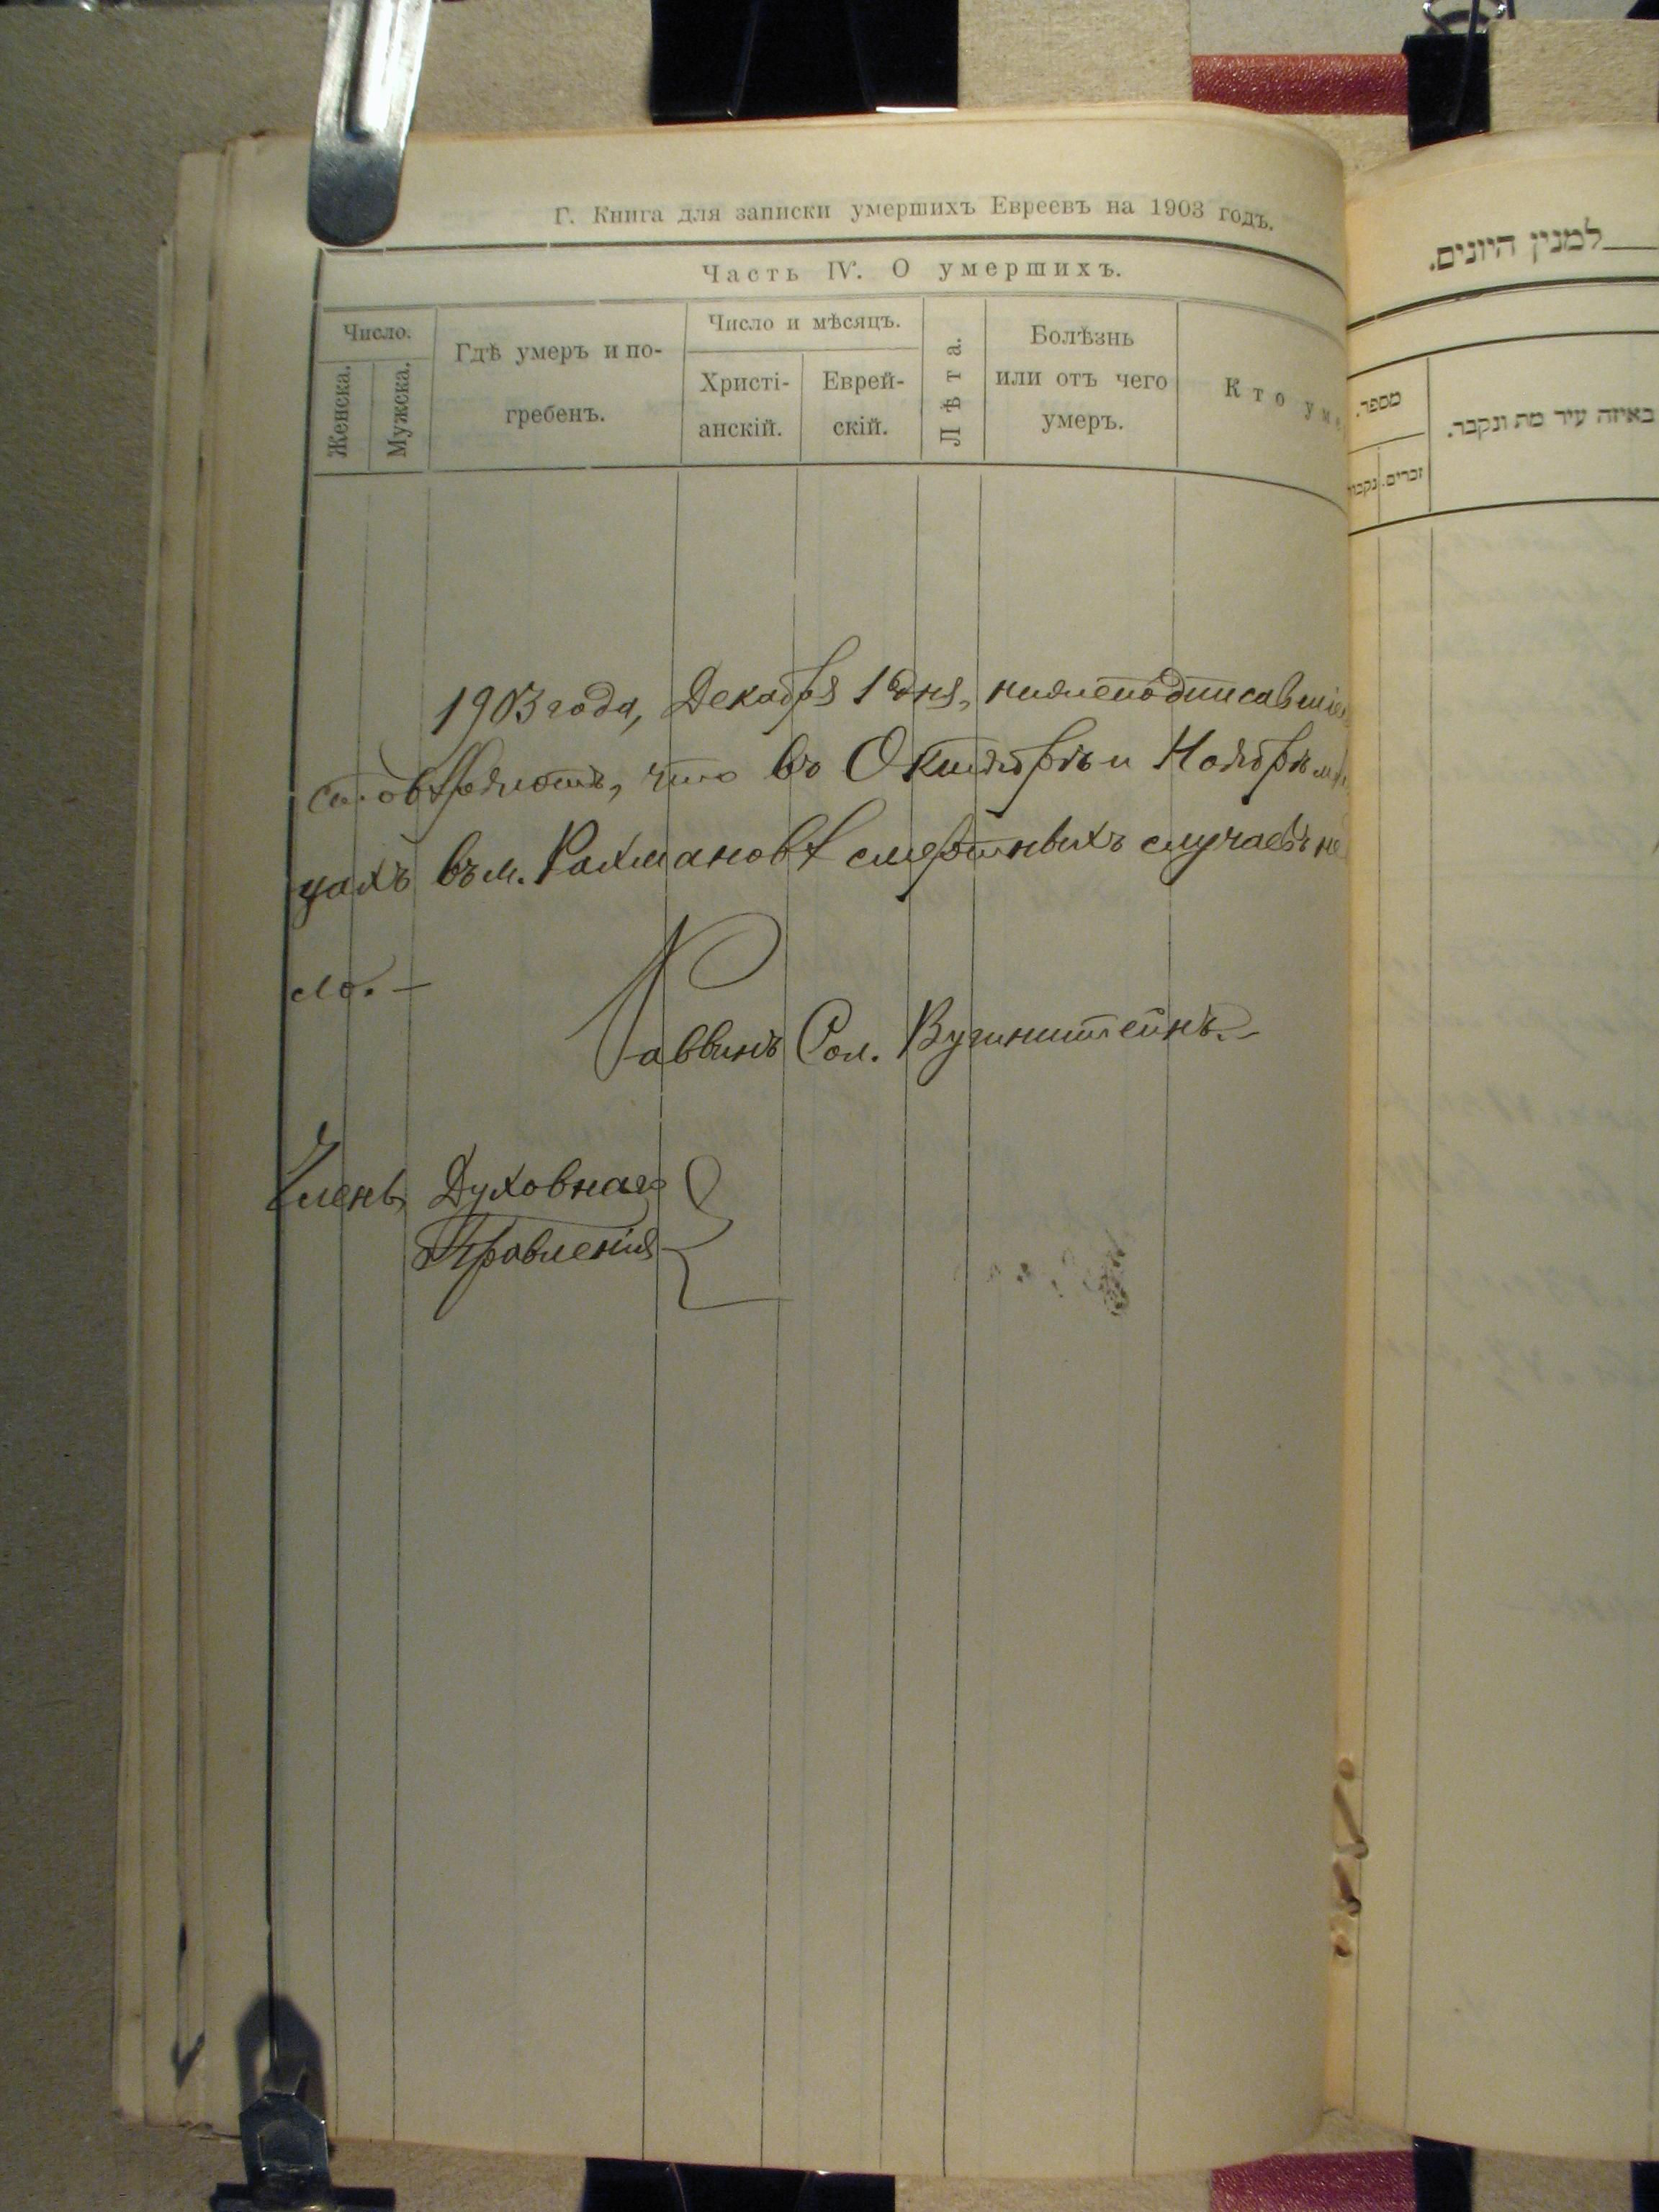 Г. Книга для записки умершихъ Евреевъ на 1903 годъ.
Часть IV. О умершихъ.
Число.
Женска.
Мужска.
Гдѣ умеръ и по-
гребенъ.
Число и мѣсяцъ.
Христі-
анскій.
Еврей-
скій.
Лѣта.
Болѣзнь
или отъ чего
умеръ.
Кто уме
1903 года, Декабря 1 дня, нижеподписавшіе
что въ Октябрѣ и Ноябрѣ мѣ
цахъ въ м. Рахмановѣ смертныхъ случаевъ не
ло. —
Раввинъ Сол. Вугинштейнъ. —
Членъ Духовнаго
Правленія
למנין היונים.
מספר.
זכרים.
באיזה עיר מת ונקבר.